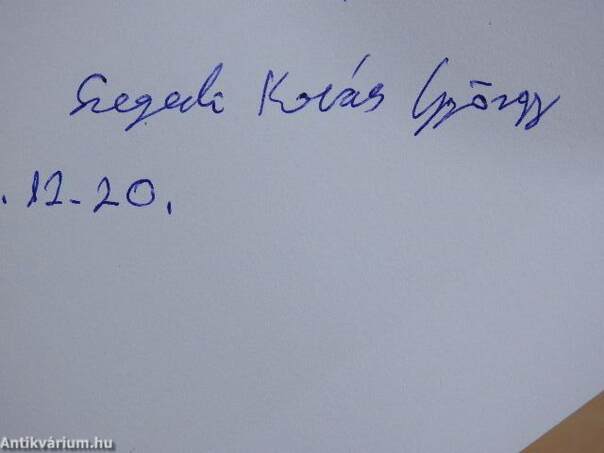 Szegedi Kovács György
. 12-20.
Antikvárium.hu